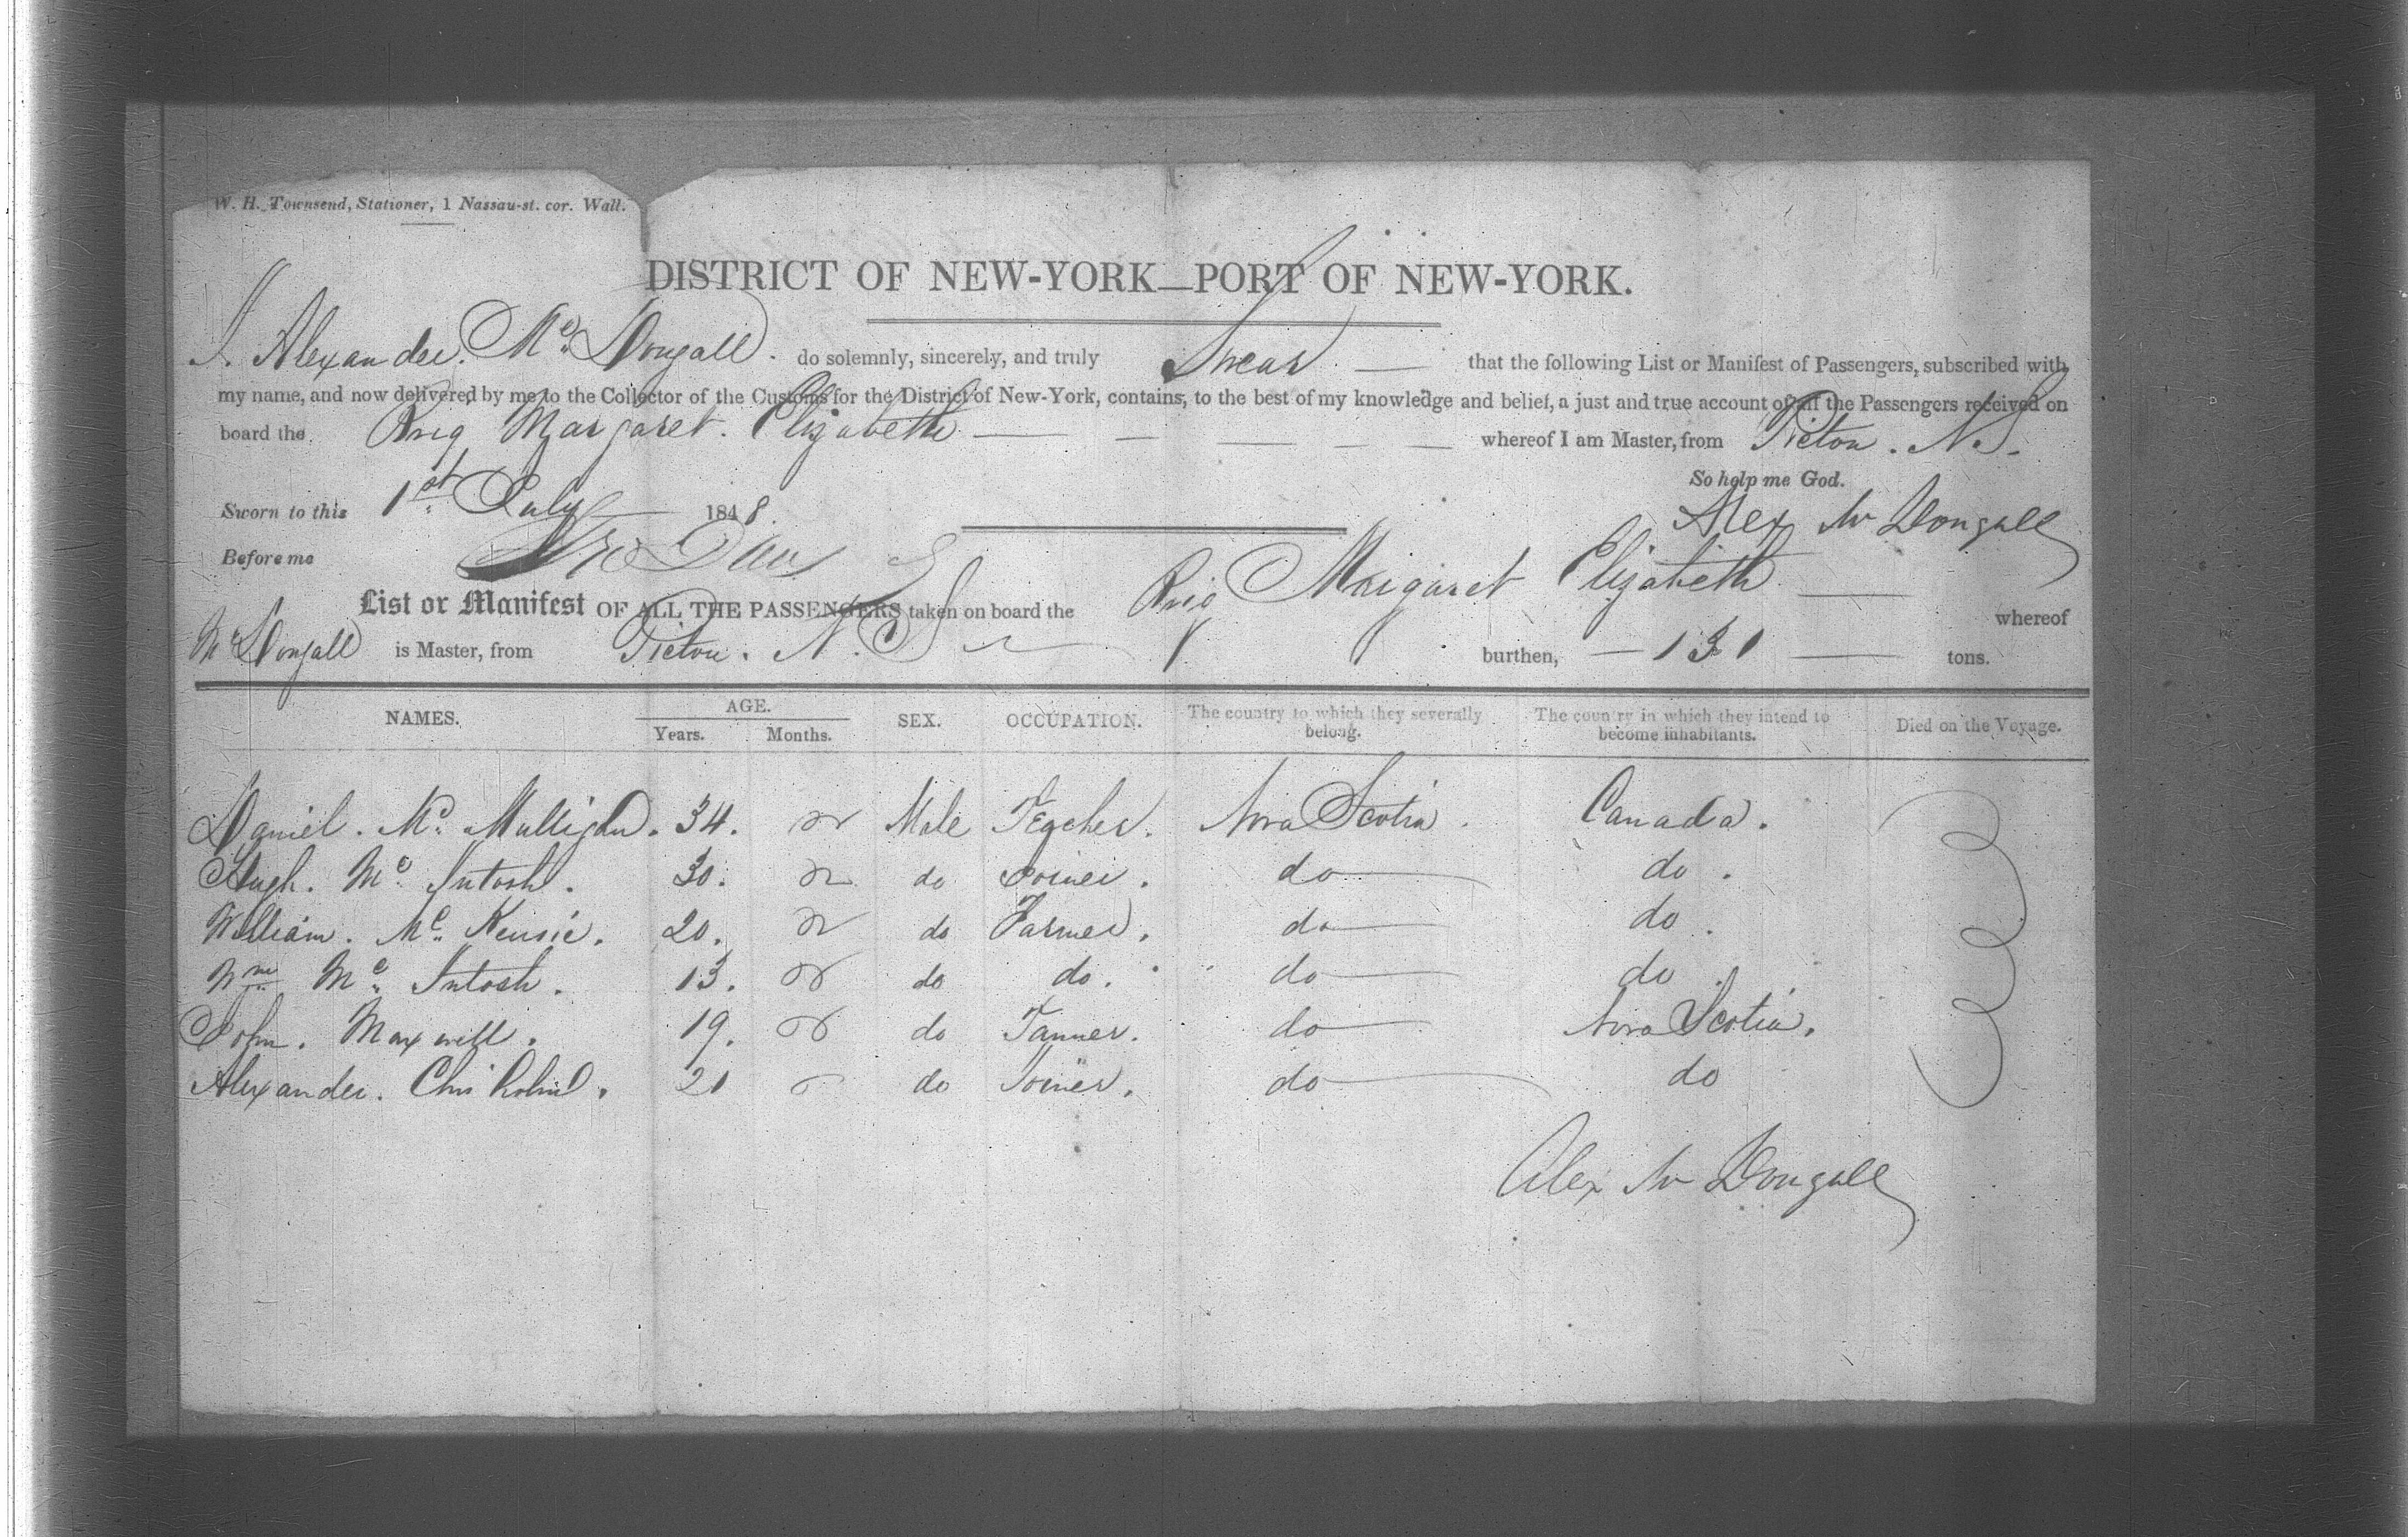 W. H. Townsend, Stationer, 1 Nassau-st. cor. Wall.
DISTRICT OF NEW-YORK—PORT OF NEW-YORK.
I. Alexander. Mc Dougall. do solemnly, sincerely, and truly Swear — that the following List or Manifest of Passengers, subscribed with
my name, and now delivered by me to the Collector of the Customs for the District of New-York, contains, to the best of my knowledge and belief, a just and true account of all the Passengers received on
board the Brig Margaret. Elizabeth — — — — — whereof I am Master, from Picton. N.S.
So help me God.
Sworn to this 1st July 1848.
Alex Mc Dougall
Before me
List or Manifest OF ALL THE PASSENGERS taken on board the Brig Margaret Elizabeth — whereof
Mc Dougall is Master, from Picton. N.S. burthen, — 131 — tons.
NAMES. AGE. SEX. OCCUPATION. The country to which they severally belong. The country in which they intend to become inhabitants. Died on the Voyage.
Years. Months.
Daniel. Mc. Mulligan. 34. Male Teacher. Nova Scotia. Canada.
Hugh. Mc. Intosh. 30. do Joiner. do do.
William. Mc. Kensie. 20. do Farmer. do do.
Wm Mc. Intosh. 13. do do. do do.
John. Maxwell. 19. do Tanner. do Nova Scotia.
Alexander. Chisholm. 21 do Joiner. do do
Alex Mc Dougall